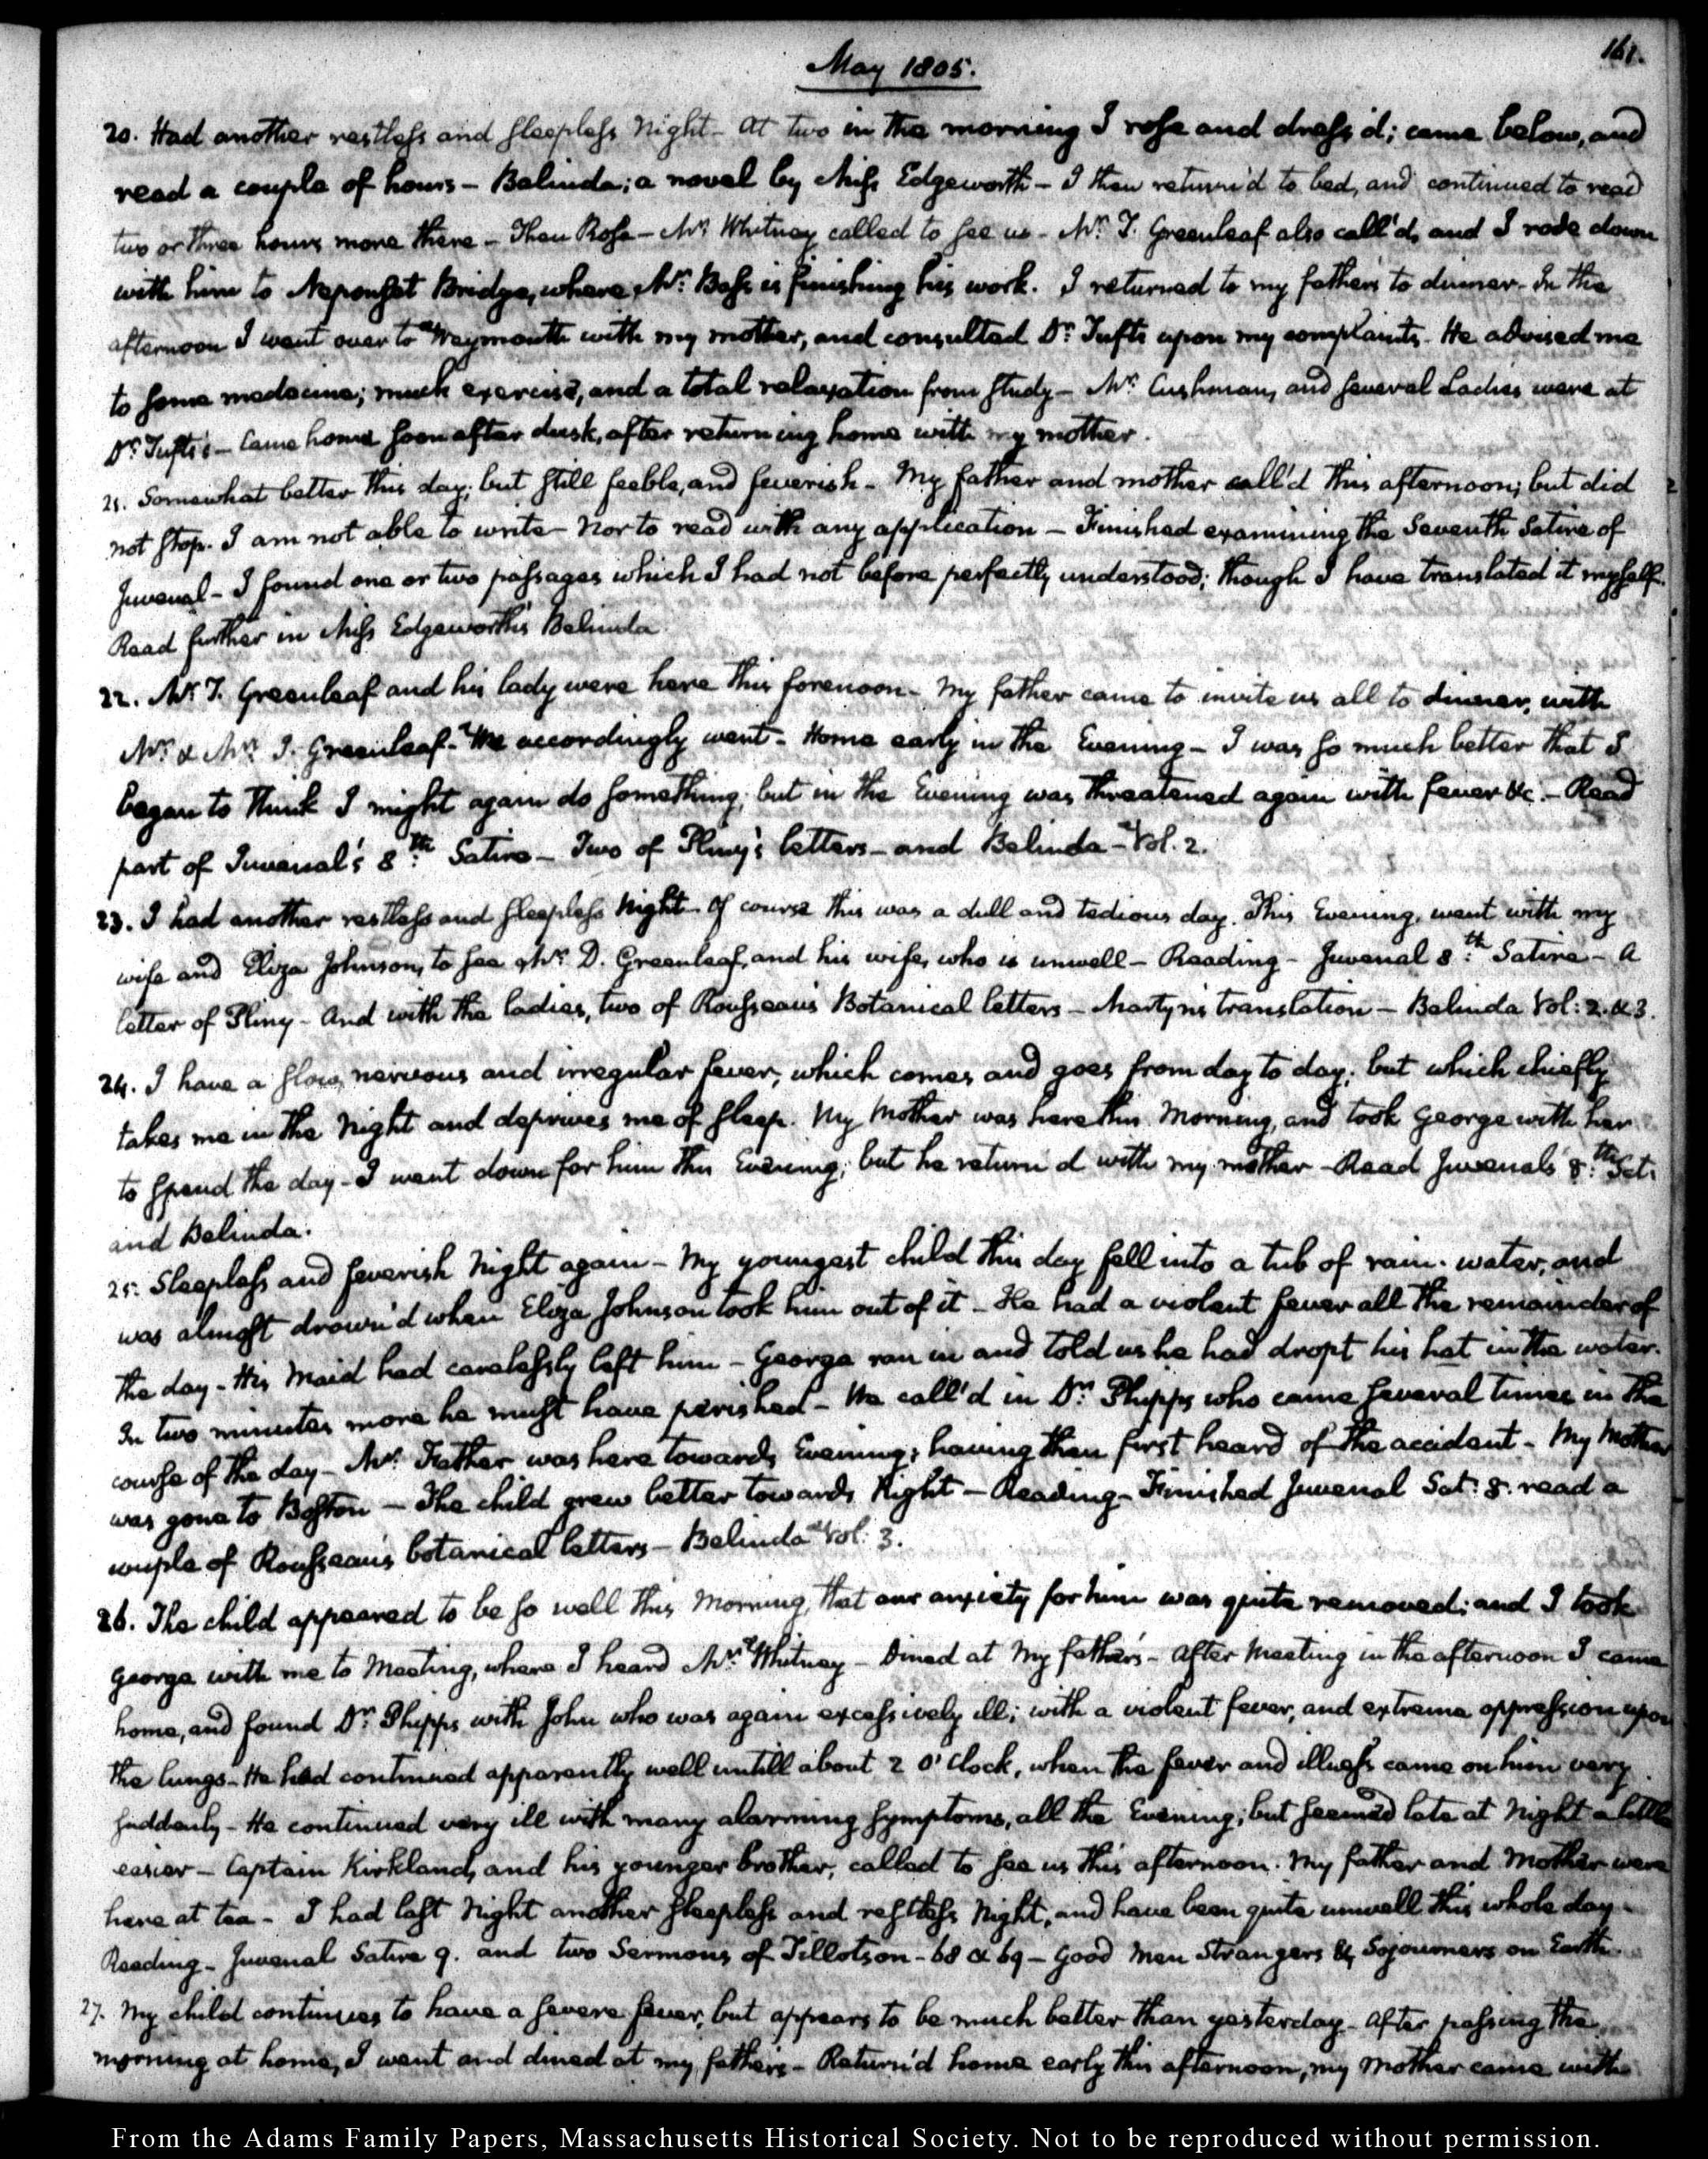 May 1805.
161.
20. Had another restless and sleepless Night – At two in the morning I rose and dress'd; came below, and
read a couple of hours – Belinda; a novel by Miss Edgeworth – I then return'd to bed, and continued to read
two or three hours more there – Then Rose – Mr. Whitney called to see us – Mr. T. Greenleaf also call'd, and I rode down
with him to Neponset Bridge, where Mr. Bass is finishing his work. I returned to my father's to dinner – In the
afternoon I went over to Weymouth with my mother, and consulted Dr. Tufts upon my complaints – He advised me
to some medecine; much exercise, and a total relaxation from study – Mr. Cushman, and several Ladies were at
Dr. Tufts's – Came home soon after dusk, after returning home with my mother.
21. Somewhat better this day; but still feeble, and feverish – My father and mother call'd this afternoon; but did
not stop. I am not able to write – Nor to read with any application – Finished examining the Seventh Satire of
Juvenal – I found one or two passages which I had not before perfectly understood; though I have translated it myself.
Read further in Miss Edgeworth's Belinda.
22. Mr. T. Greenleaf and his lady were here this forenoon – My father came to invite us all to dinner, with
Mr. & Mrs. J. Greenleaf – We accordingly went – Home early in the Evening – I was so much better that I
began to think I might again do something; but in the Evening was threatened again with fever &c. – Read
part of Juvenal's 8th. Satire – Two of Pliny's letters – and Belinda – Vol. 2.
23. I had another restless and sleepless Night – Of course this was a dull and tedious day. This Evening, went with my
wife and Eliza Johnson, to see Mr. D. Greenleaf, and his wife, who is unwell – Reading – Juvenal 8th. Satire – A
letter of Pliny – And with the ladies, two of Rousseau's Botanical letters – Martyn's translation – Belinda Vol: 2. & 3.
24. I have a slow, nervous and irregular fever, which comes and goes from day to day; but which chiefly
takes me in the Night and deprives me of sleep. My Mother was here this Morning, and took George with her
to spend the day – I went down for him this Evening; but he return'd with my mother – Read Juvenal's 8th. Sat:
and Belinda.
25. Sleepless and feverish Night again – My youngest child this day fell into a tub of rain-water, and
was almost drown'd when Eliza Johnson took him out of it – He had a violent fever all the remainder of
the day – His Maid had carelessly left him – George ran in and told us he had dropt his hat in the water.
In two minutes more he must have perished – We call'd in Dr. Phipps who came several times in the
course of the day – My Father was here towards Evening; having then first heard of the accident – My Mother
was gone to Boston – The child grew better towards Night – Reading – Finished Juvenal Sat: 8. read a
couple of Rousseau's botanical letters – Belinda Vol: 3.
26. The child appeared to be so well this Morning, that our anxiety for him was quite removed; and I took
George with me to Meeting, where I heard Mr. Whitney – Dined at my father's – After Meeting in the afternoon I came
home, and found Dr. Phipps with John who was again excessively ill; with a violent fever, and extreme oppression upon
the lungs – He had continued apparently well untill about 2 O'Clock, when the fever and illness came on him very
suddenly – He continued very ill with many alarming symptoms, all the Evening; but seemed late at Night a little
easier – Captain Kirkland, and his younger brother, called to see us this afternoon. My father and Mother were
here at tea – I had last Night another sleepless and restless Night, and have been quite unwell this whole day –
Reading – Juvenal Satire 9. and two Sermons of Tillotson – 68 & 69 – Good Men Strangers & Sojourners on Earth.
27. My child continues to have a severe fever, but appears to be much better than yesterday – After passing the
morning at home, I went and dined at my father's – Return'd home early this afternoon, my Mother came with
From the Adams Family Papers, Massachusetts Historical Society. Not to be reproduced without permission.